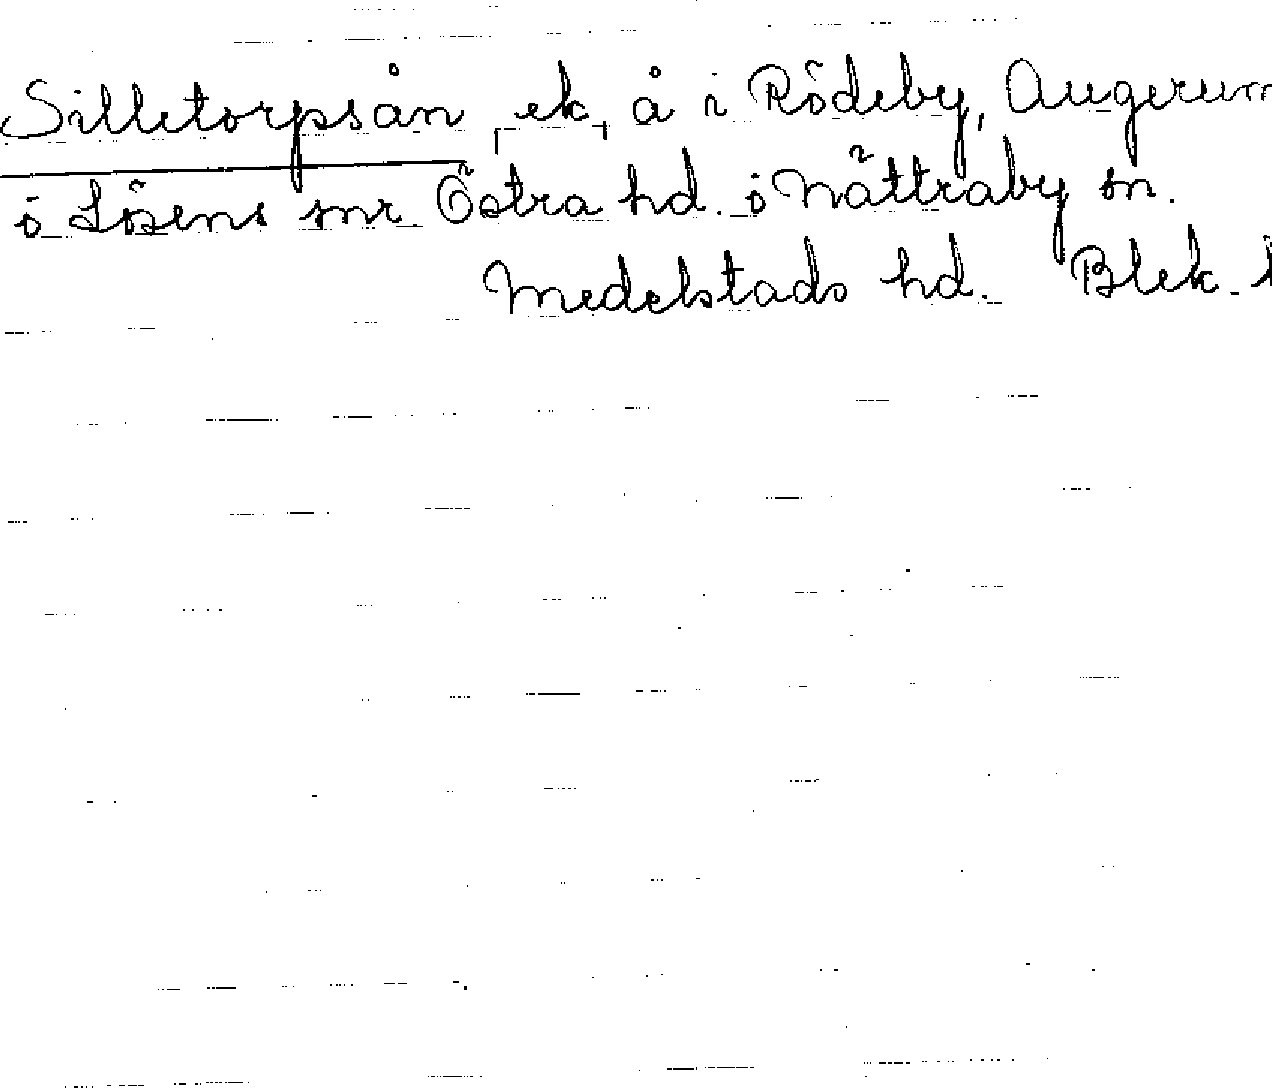 Silletorpsån, ek, å i Rödeby, Augerum
o Lösens snr Östra hd. o Nättraby sn.
Medelstads hd. Blek.